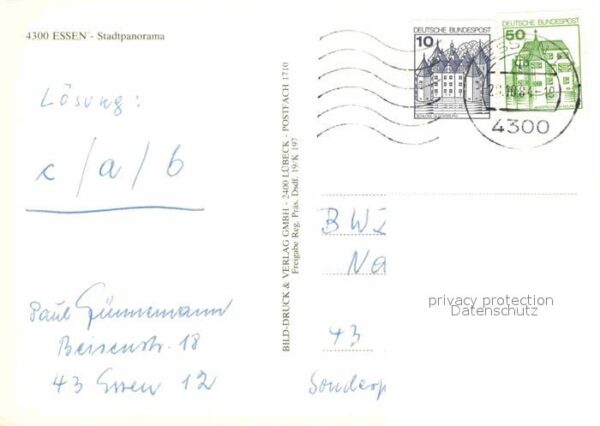 4300 ESSEN - Stadtpanorama
Lösung:
c/a/b
Paul Günnemann
Beisenstr. 18
43 Essen 12
BILD-DRUCK & VERLAG GMBH - 2400 LÜBECK - POSTFACH 1710
Freigabe Reg. Präs. Dsdf. 19/K 197
DEUTSCHE BUNDESPOST
10
DEUTSCHE BUNDESPOST
50
4300
BWZ
Na
43
Sonderp
privacy protection
Datenschutz